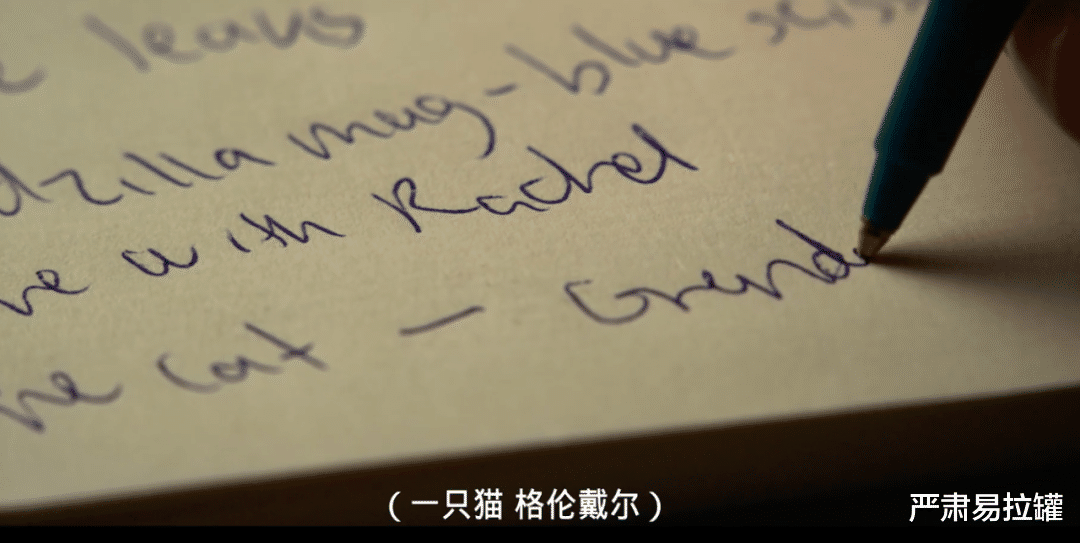 leavs
dzilla mug - blue
with Rachel
he cat — Grend
（一只猫 格伦戴尔）
严肃易拉罐